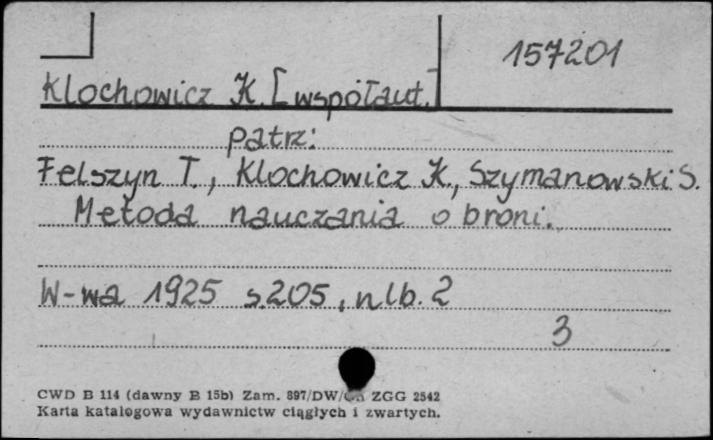 157201
Klochowicz K. [współaut.]
patrz:
Felszyn T., Klochowicz K., Szymanowski S.
Metoda nauczania o broni.
W-wa 1925 s.205, nlb. 2
3
CWD B 114 (dawny B 15b) Zam. 897/DW/ ZGG 2542
Karta katalogowa wydawnictw ciągłych i zwartych.